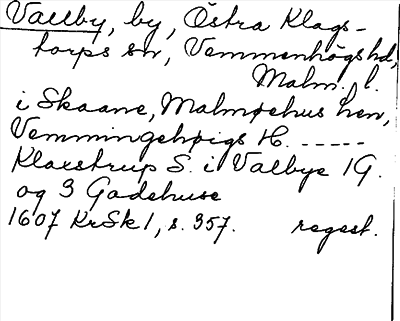 Vallby, by, Östra Klags-
torps sn, Vemmenhögs hd,
Malm. l.
i Skaane, Malmøehus Len,
Vemmingehøigs H. -----
Klaestrup S. i Valbye 1 G.
og 3 Gadehuse
1607 KrSk 1, s. 357. regest.